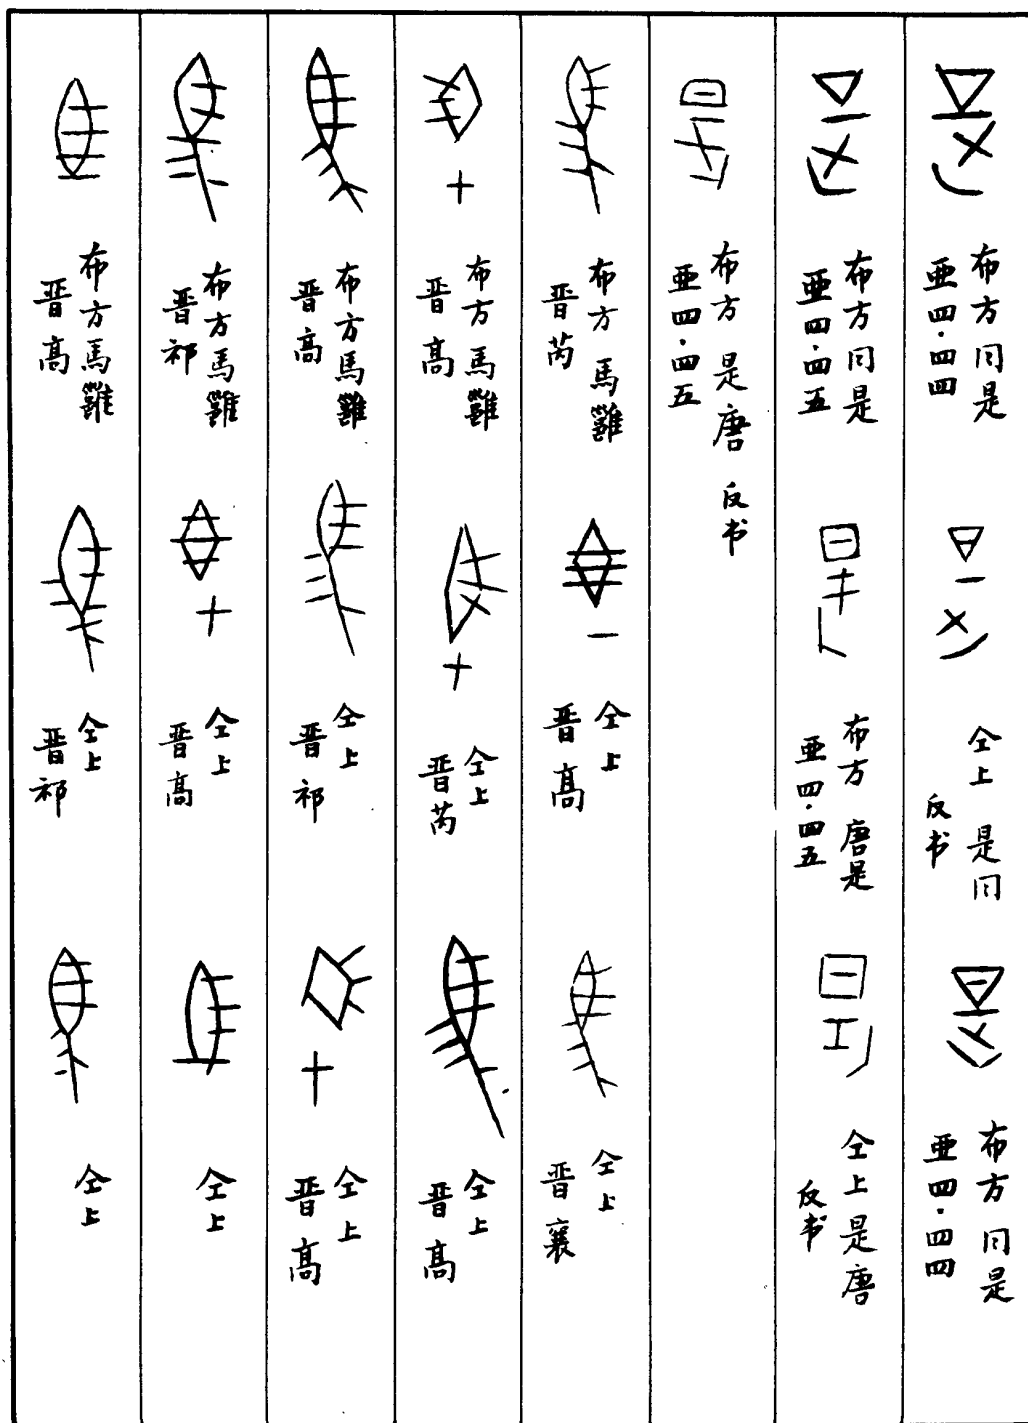 布方同是
亜四·四四
仝上 是同
反书
布方 同是
亜四·四四
布方同是
亜四·四五
布方 唐是
亜四·四五
仝上是唐
反书
布方 是唐 反书
亜四·四五
布方 馬雝
晋芮
仝上
晋高
仝上
晋襄
布方馬雝
晋高
仝上
晋芮
仝上
晋高
布方馬雝
晋高
仝上
晋祁
仝上
晋高
布方馬雝
晋祁
仝上
晋高
仝上
布方馬雝
晋高
仝上
晋祁
仝上